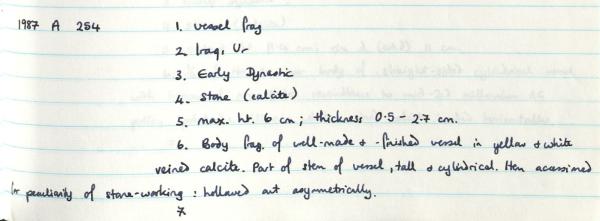 1987 A 254 1. vessel frag
2 Iraq, Ur
3. Early Dynastic
4. stone (calcite)
5. max. ht. 6 cm; thickness 0.5 - 2.7 cm.
6. Body frag. of well-made & -finished vessel in yellow & white
veined calcite. Part of stem of vessel, tall & cylindrical. Hen acessioned
for peculiarity of stone-working: hollowed out asymmetrically.
*